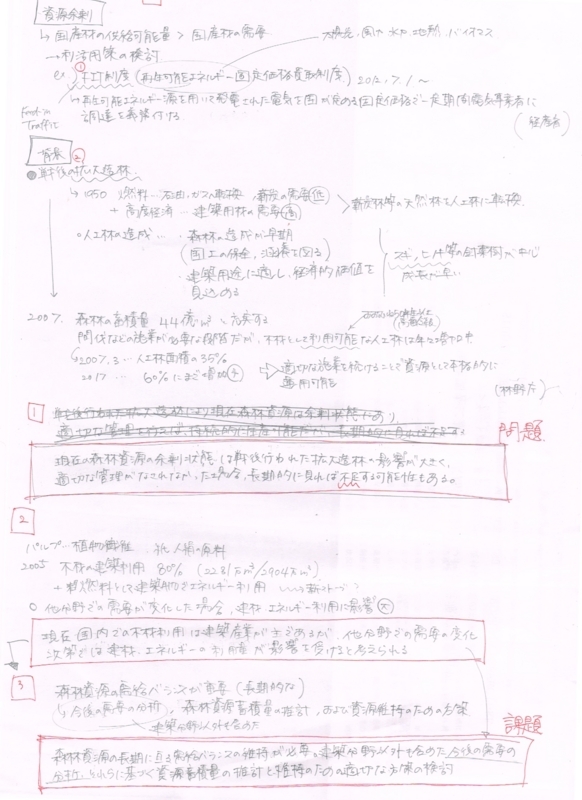 資源余剰
→ 国産材の供給可能量 > 国産材の需要
→ 利活用策の検討
太陽光、風力、水力、地熱、バイオマス
ex) ① FIT制度 (再生可能エネルギー固定価格買取制度) 2012.7.1 〜
→ 再生可能エネルギー源を用いて発電された電気を国が定める固定価格で一定期間電気事業者に
調達を義務付ける
Feed-in
Traffic
背景 ②
●戦後の拡大造林
→ 1950 燃料…石油・ガスへ転換 薪炭の需要 低
+ 高度経済…建築用材の需要 高
薪炭林等の天然林を人工林に転換
○人工林の造成… ・森林の造成が早期
(国土の保全、涵養を図る)
・建築用途に適し、経済的価値を
見込める
スギ、ヒノキ等の針葉樹が中心
成長が早い
2007. 森林の蓄積量 44億m³
間伐などの施業が必要な段階だが、木材として利用可能な人工林は年々増加中
→ 2007.3…人工林面積の35%
2017 … 60%にまで増加
⇒ 適切な施業を続けることで資源として本格的に
運用可能
(林野庁)
1
問題
現在の森林資源の余剰状態は戦後行われた拡大造林の影響が大きく、
適切な管理がなされなかった場合、長期的に見れば不足する可能性もある。
2
パルプ…植物繊維 紙の原料
2005 木材の建築利用 80%
○ 他分野での需要が変化した場合、建材・エネルギー利用に影響 大
現在国内での木材利用は建築産業が主であるが、他分野での需要の変化
次第では建材、エネルギーの利用者が影響を受けると考えられる
3
森林資源の需給バランスが重要 (長期的な)
→ 今後の需要の分析、森林資源蓄積量の推計、および資源維持のための方策
建築分野以外を含めた
課題
森林資源の長期に亘る需給バランスの維持が必要。建築分野以外も含めた今後の需要の
分析、それらに基づく資源蓄積量の推計と維持のための適切な方策の検討